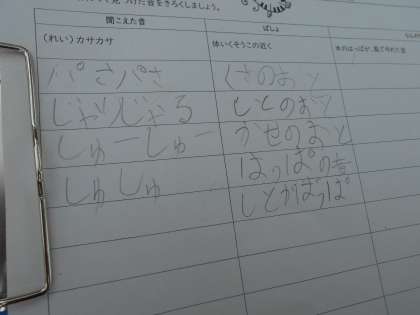 見つけた音をきろくしましょう。
聞こえた音 ばしょ
(れい)カサカサ 体いくそうこの近く 木のはっぱが、風で冷れた音
パさパさ くさのおと
じゃりじゃる しとのおと
しゅーしゅー かせのおと
しゅしゅ はっぱの音
しとかはっぱ